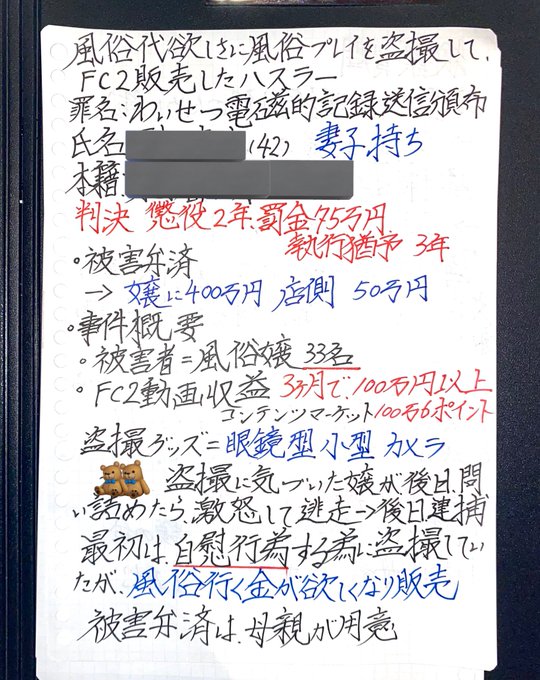 風俗代欲しさに風俗プレイを盗撮して、
FC2販売したハスラー
罪名:わいせつ電磁的記録送信頒布
氏名 (42) 妻子持ち
本籍
判決 懲役2年、罰金75万円
執行猶予 3年
・被害弁済
→ 嬢に400万円 店側 50万円
・事件概要
・被害者=風俗嬢 33名
・FC2動画収益 3ヵ月で、100万円以上
コンテンツマーケット100万6ポイント
盗撮グッズ=眼鏡型小型カメラ
盗撮に気づいた嬢が後日、問
い詰めたら、激怒して逃走→後日逮捕
最初は、自慰行為する為に盗撮してい
たが、風俗行く金が欲しくなり販売
被害弁済は、母親が用意